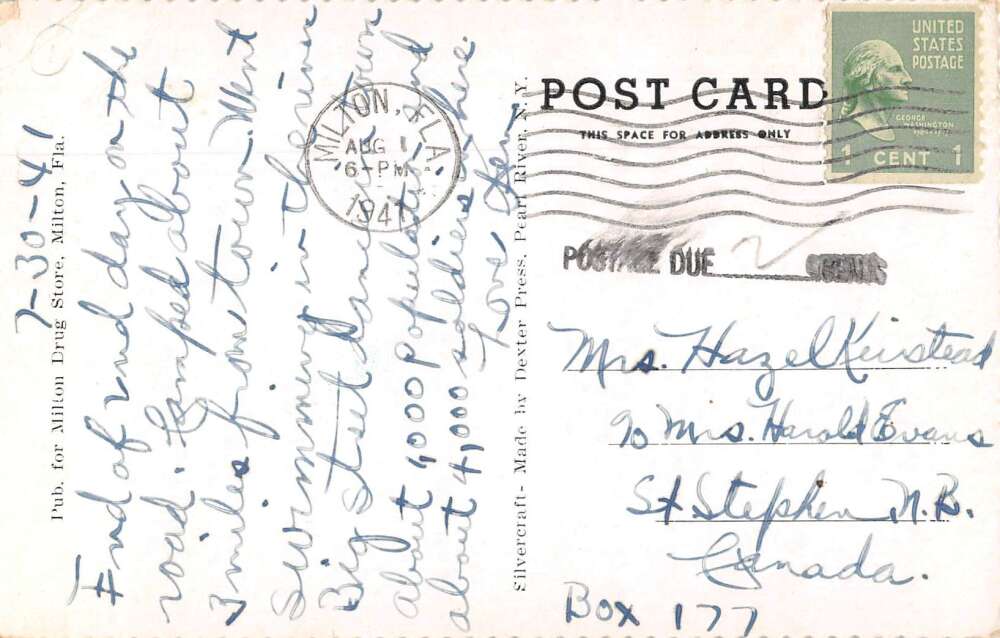 7-30-41
End of 2nd day on the
road. Camped about
3 miles from town. Went
Swimming in the river
Big steel drum in town
about 1,000 population and
about 4,000 soldiers here.
Love,
Pub. for Milton Drug Store, Milton, Fla.
Silvercraft - Made by Dexter Press, Pearl River, N. Y.
MILTON, FLA.
AUG 1
6-PM
1941
POST CARD
THIS SPACE FOR ADDRESS ONLY
UNITED
STATES
POSTAGE
GEORGE
WASHINGTON
1 CENT 1
POSTAGE DUE 2 CENTS
Mrs. Hazel Kinstead
℅ Mrs. Harold Evans
St Stephen N.B.
Canada.
Box 177